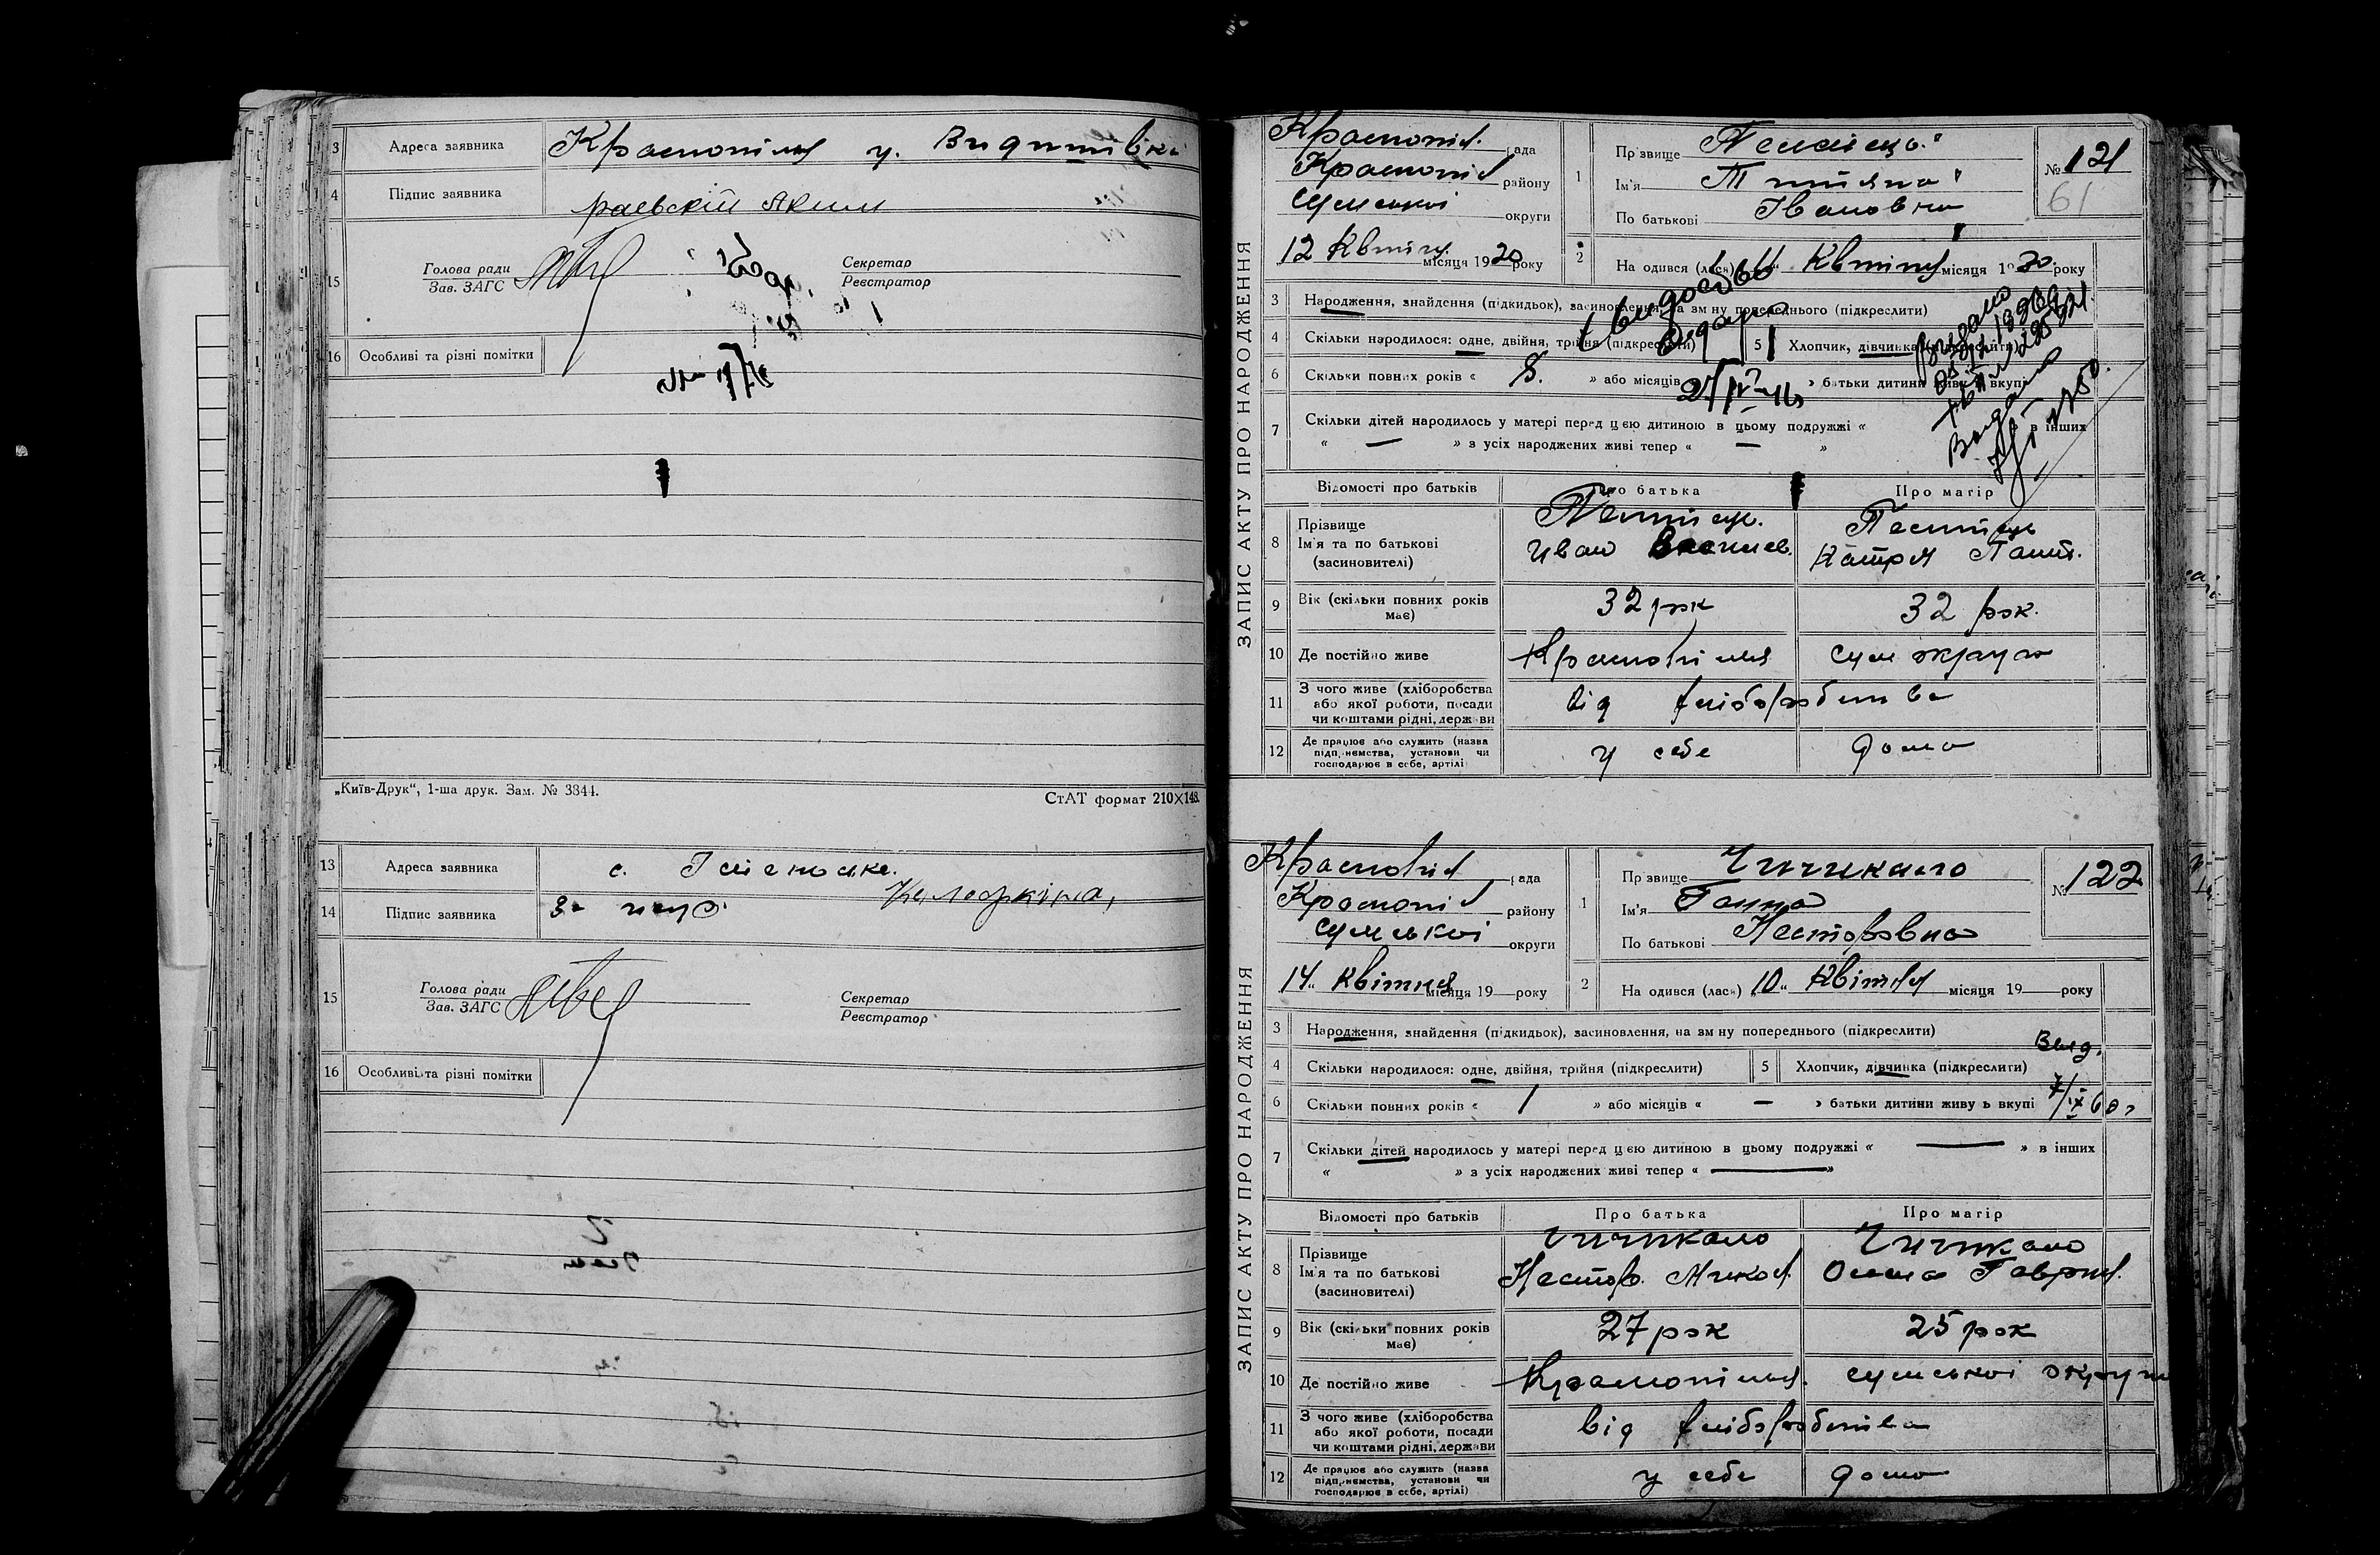 3 Адреса заявника Краснопілля у. Видншівка
4 Підпис заявника раевскій Яким
15 Голова ради
Зав. ЗАГС
Секретар
Реєстратор
16 Особливі та різні помітки
„Київ-Друк“, 1-ша друк. Зам. № 3844.
СтАТ формат 210X148.
13 Адреса заявника с.
14 Підпис заявника за непис.
15 Голова ради
Зав. ЗАГС
Секретар
Реєстратор
16 Особливі та різні помітки
ЗАПИС АКТУ ПРО НАРОДЖЕННЯ
Краснопіл. рада
Краснопіл району
Сумської округи
12 Квітня місяця 1930 року
1 Прізвище
Ім'я Титяна
По батькові Івановна
№ 121
61
2 Народився (лася) Квітня місяця 1930 року
3 Народження, знайдення (підкидьок), засиновлення, на зміну попереднього (підкреслити)
4 Скільки народилося: одне, двійня, трійня (підкреслити)
5 Хлопчик, дівчинка (підкреслити)
6 Скільки повних років « 8. » або місяців « » батьки дитини живуть вкупі
7 Скільки дітей народилось у матері перед цією дитиною в цьому подружжі « » в інших
« — » з усіх народжених живі тепер « — »
Відомості про батьків Про батька Про матір
8 Прізвище
Ім'я та по батькові Иван Васильев. Катря
(засиновителі)
9 Вік (скільки повних років має) 32 рок 32 рок.
10 Де постійно живе Краснопілля Сум округа
11 З чого живе (хліборобства або якої роботи, посади чи коштами рідні, держави від хліборобства
12 Де працює або служить (назва підприємства, установи чи господарює в себе, артілі) у себе дома
ЗАПИС АКТУ ПРО НАРОДЖЕННЯ
Краснопіл рада
Краснопіл району
Сумської округи
14 квітня місяця 19 року
1 Прізвище Чичикало
Ім'я Ганна
По батькові Несторовна
№ 122
2 Народився (лася) „10“ Квітня місяця 19 року
3 Народження, знайдення (підкидьок), засиновлення, на зміну попереднього (підкреслити)
4 Скільки народилося: одне, двійня, трійня (підкреслити)
5 Хлопчик, дівчинка (підкреслити)
Выд.
7/IX 60 г
6 Скільки повних років « 1 » або місяців « — » батьки дитини живуть вкупі
7 Скільки дітей народилось у матері перед цією дитиною в цьому подружжі « — » в інших
« » з усіх народжених живі тепер « — »
Відомості про батьків Про батька Про матір
8 Прізвище Чичикало Чичикало
Ім'я та по батькові Нестор. Микол. Олена Гаврил.
(засиновителі)
9 Вік (скільки повних років має) 27 рок 25 рок
10 Де постійно живе Краснопілля. Сумської округи
11 З чого живе (хліборобства або якої роботи, посади чи коштами рідні, держави від хліборобства
12 Де працює або служить (назва підприємства, установи чи господарює в себе, артілі) у себе дома